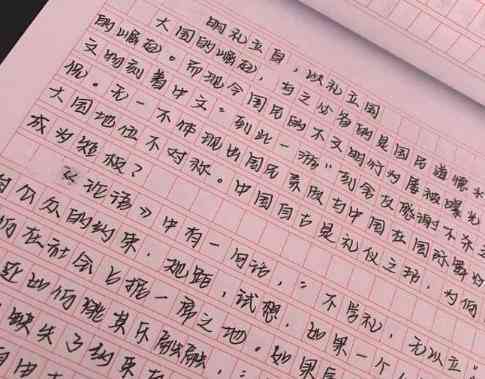 明礼立身，以礼立国
大国的崛起，与之必备的是国民道德水
的崛起。而现今国民的不文明行为屡被曝光
文物刻着中文"到此一游"
况。无一不体现出国民素质与中国在国际舞
大国地位不对称。中国自古是礼仪之邦，为何
成为短板？
《论语》中有一句话，：不学礼，无以立
公众的约束，地铁，试想，如果一个
在社会占据一席之地。如果
其乐融融，
缺失了约束